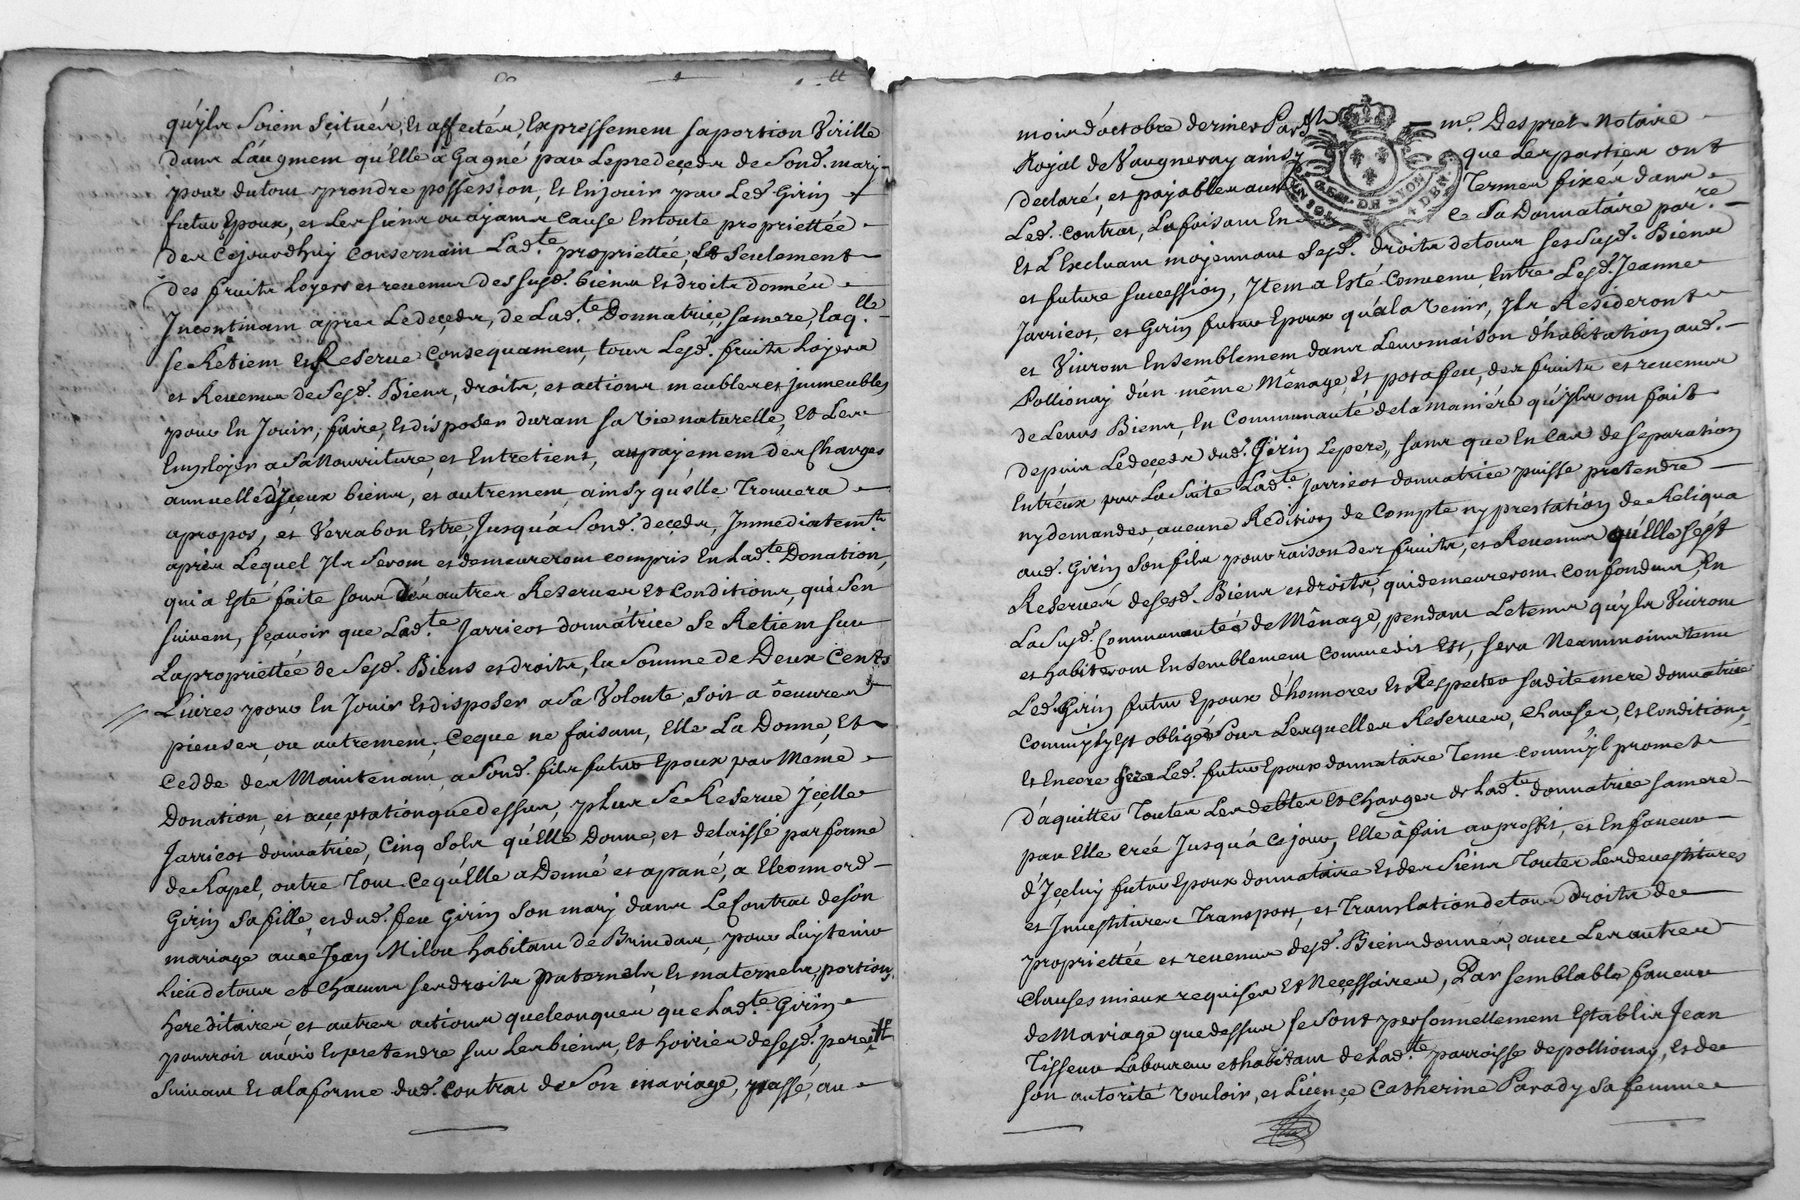 qu'yls soient scitués, et affectés, expressement sa portion Virille
dans L'augment qu'Elle a Gagné par Le predeçeds de Sond. mary
pour du tout prendre possession, et En jouir par Led. Girin
futur Epoux, et Les siens ou ayants cause En toute proprietté
des Cejourdhuy consernant Ladte. proprietté, et seulement
des fruits Loyers et revenus des susd. biens et droits donnés
Incontinant apres Le deçeds, de Ladte. Donnatrice, sa mere, laqlle.
se Retient En Reserve consequament, tous Lesd. fruits Loyers
et Revenus de Sesd. Biens, droits, et actions meubles et jmmeubles
pour En Jouir, faire, et disposer durant sa vie naturelle, et Les
Employer a Sa Nourriture, et Entretient, au payement des Charges
annuelle d'Jçeux biens, et autrement ainsy qu'elle Trouvera
apropos, et Verra bon Estre, Jusqu'a Sond. deçeds, Immediatemt.
après Lequel Jls Seront et demeureront compris En Ladte. Donation,
qui a Esté faite sous des autres Reserves et Conditions, qui S'en
suivent, sçavoir que Ladte. Jarricot donnatrice Se Retient sur
La proprietté de Sesd. Biens et droits, la Somme de Deux Cents
Livres pour En Jouir et disposer a Sa Volonté, soit a oeuvres
pieuses, ou autrement, Ceque ne faisant, Elle La Donne, et
Cedde des Maintenant, a Sond. fils futur Epoux par Même
Donation, et acceptation que dessus, plus Se Reserve Jçelle
Jarricot donnatrice, Cinq Sols qu'Elle Donne, et delaissé par forme
de Rapel, outre Tout Cequ'Elle a Donné et apané, a Eleonnord
Girin Sa fille, et dud. feu Girin Son mary dans Le Contrat de son
mariage avec Jean habitant de Brindas, pour Luy tenir
Lieu de tous et Chacuns Ses droits Paternels et maternels, portions
hereditaires, et autres actions quelconques que Ladte. Girin
pourroit avoir et pretendre sur Les biens, et hoiries de sesd. pere et
Suivant et a la forme dud. contrat de Son mariage, passé, au
mois d'octobre dernier Pardt. me. Despret Notaire
Royal de Vaugneray ainsy que Les parties ont
declaré, et payables aux Termes fixés dans
Led. contrat, La faisant En Ce Sa Donnataire parre.
Et L'Excluant moyennant Sesd. droits de tous ses susd. Biens
et future succession, Jtem a Esté Convenu Entre Lesd. Jeanne
Jarricot, et Girin futur Epoux qu'a la venir, Jls Resideront
et Vivront Ensemblement dans Leur maison d'habitation aud.
Pollionay d'un même Ménage, et pot a feu, des fruits et revenus
de Leurs Biens, En Communauté de la maniére qu'yls ont fait
depuis Le deçeds dud. Girin Le pere, sans que En Cas de separation
Entr'eux par La Suite Ladte. Jarricot donnatrice puisse pretendre
ny demander, aucune Redition de Compte ny prestation de Reliqua
aud. Girin Son fils pour raison des fruits, et Revenus qu'Elle S'est
Reservés de sesd. Biens et droits, qui demeureront confondus En
La susd. Communauté de Ménage, pendant Le tems qu'yls Vivront
et habiteront Ensemblement comme dit Est, sera Neanmoins tenu
Led. Girin futur Epoux d'honnorer et Respecter sadite mere donnatrice
comm'yl y Est obligé Sous Lesquelles Reserves, Charges, et Conditions,
Et Encore sera Led. futur Epoux donnataire Tenu comm'yl promet
d'aquitter Toutes Les debtes et Charges de Ladte. donnatrice sa mere
par Elle creé Jusqu'à ce jour, Elle à fait au proffit, et En faveur
d'Jceluy futur Epoux donnataire Et des Siens Toutes Les devestitures
et Jnvestitures Transport, et Translation de tous Droits de
proprietté et revenus desd. Biens donnés, avec Les autres
Clauses mieux requises et Neçessaires, Par semblable faveur
de Mariage que dessus se sont personnellement Establis Jean
Tisseur Laboureur et habitant de Ladte. parroisse de pollionay, et de
son autorité vouloir, et Licençe Catherine Parady sa femme
GEN. DE LYON